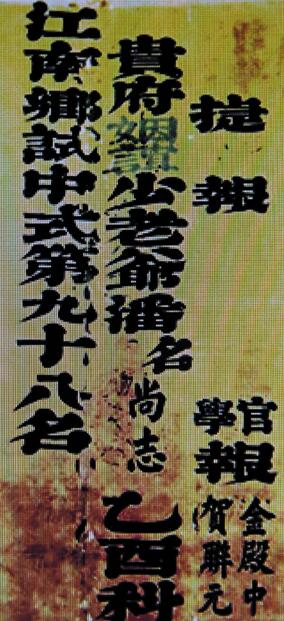 捷報
官學報
金殿中
賀聯元
貴府少老爺潘名尚志
乙酉科
江南鄉試中式第九十八名